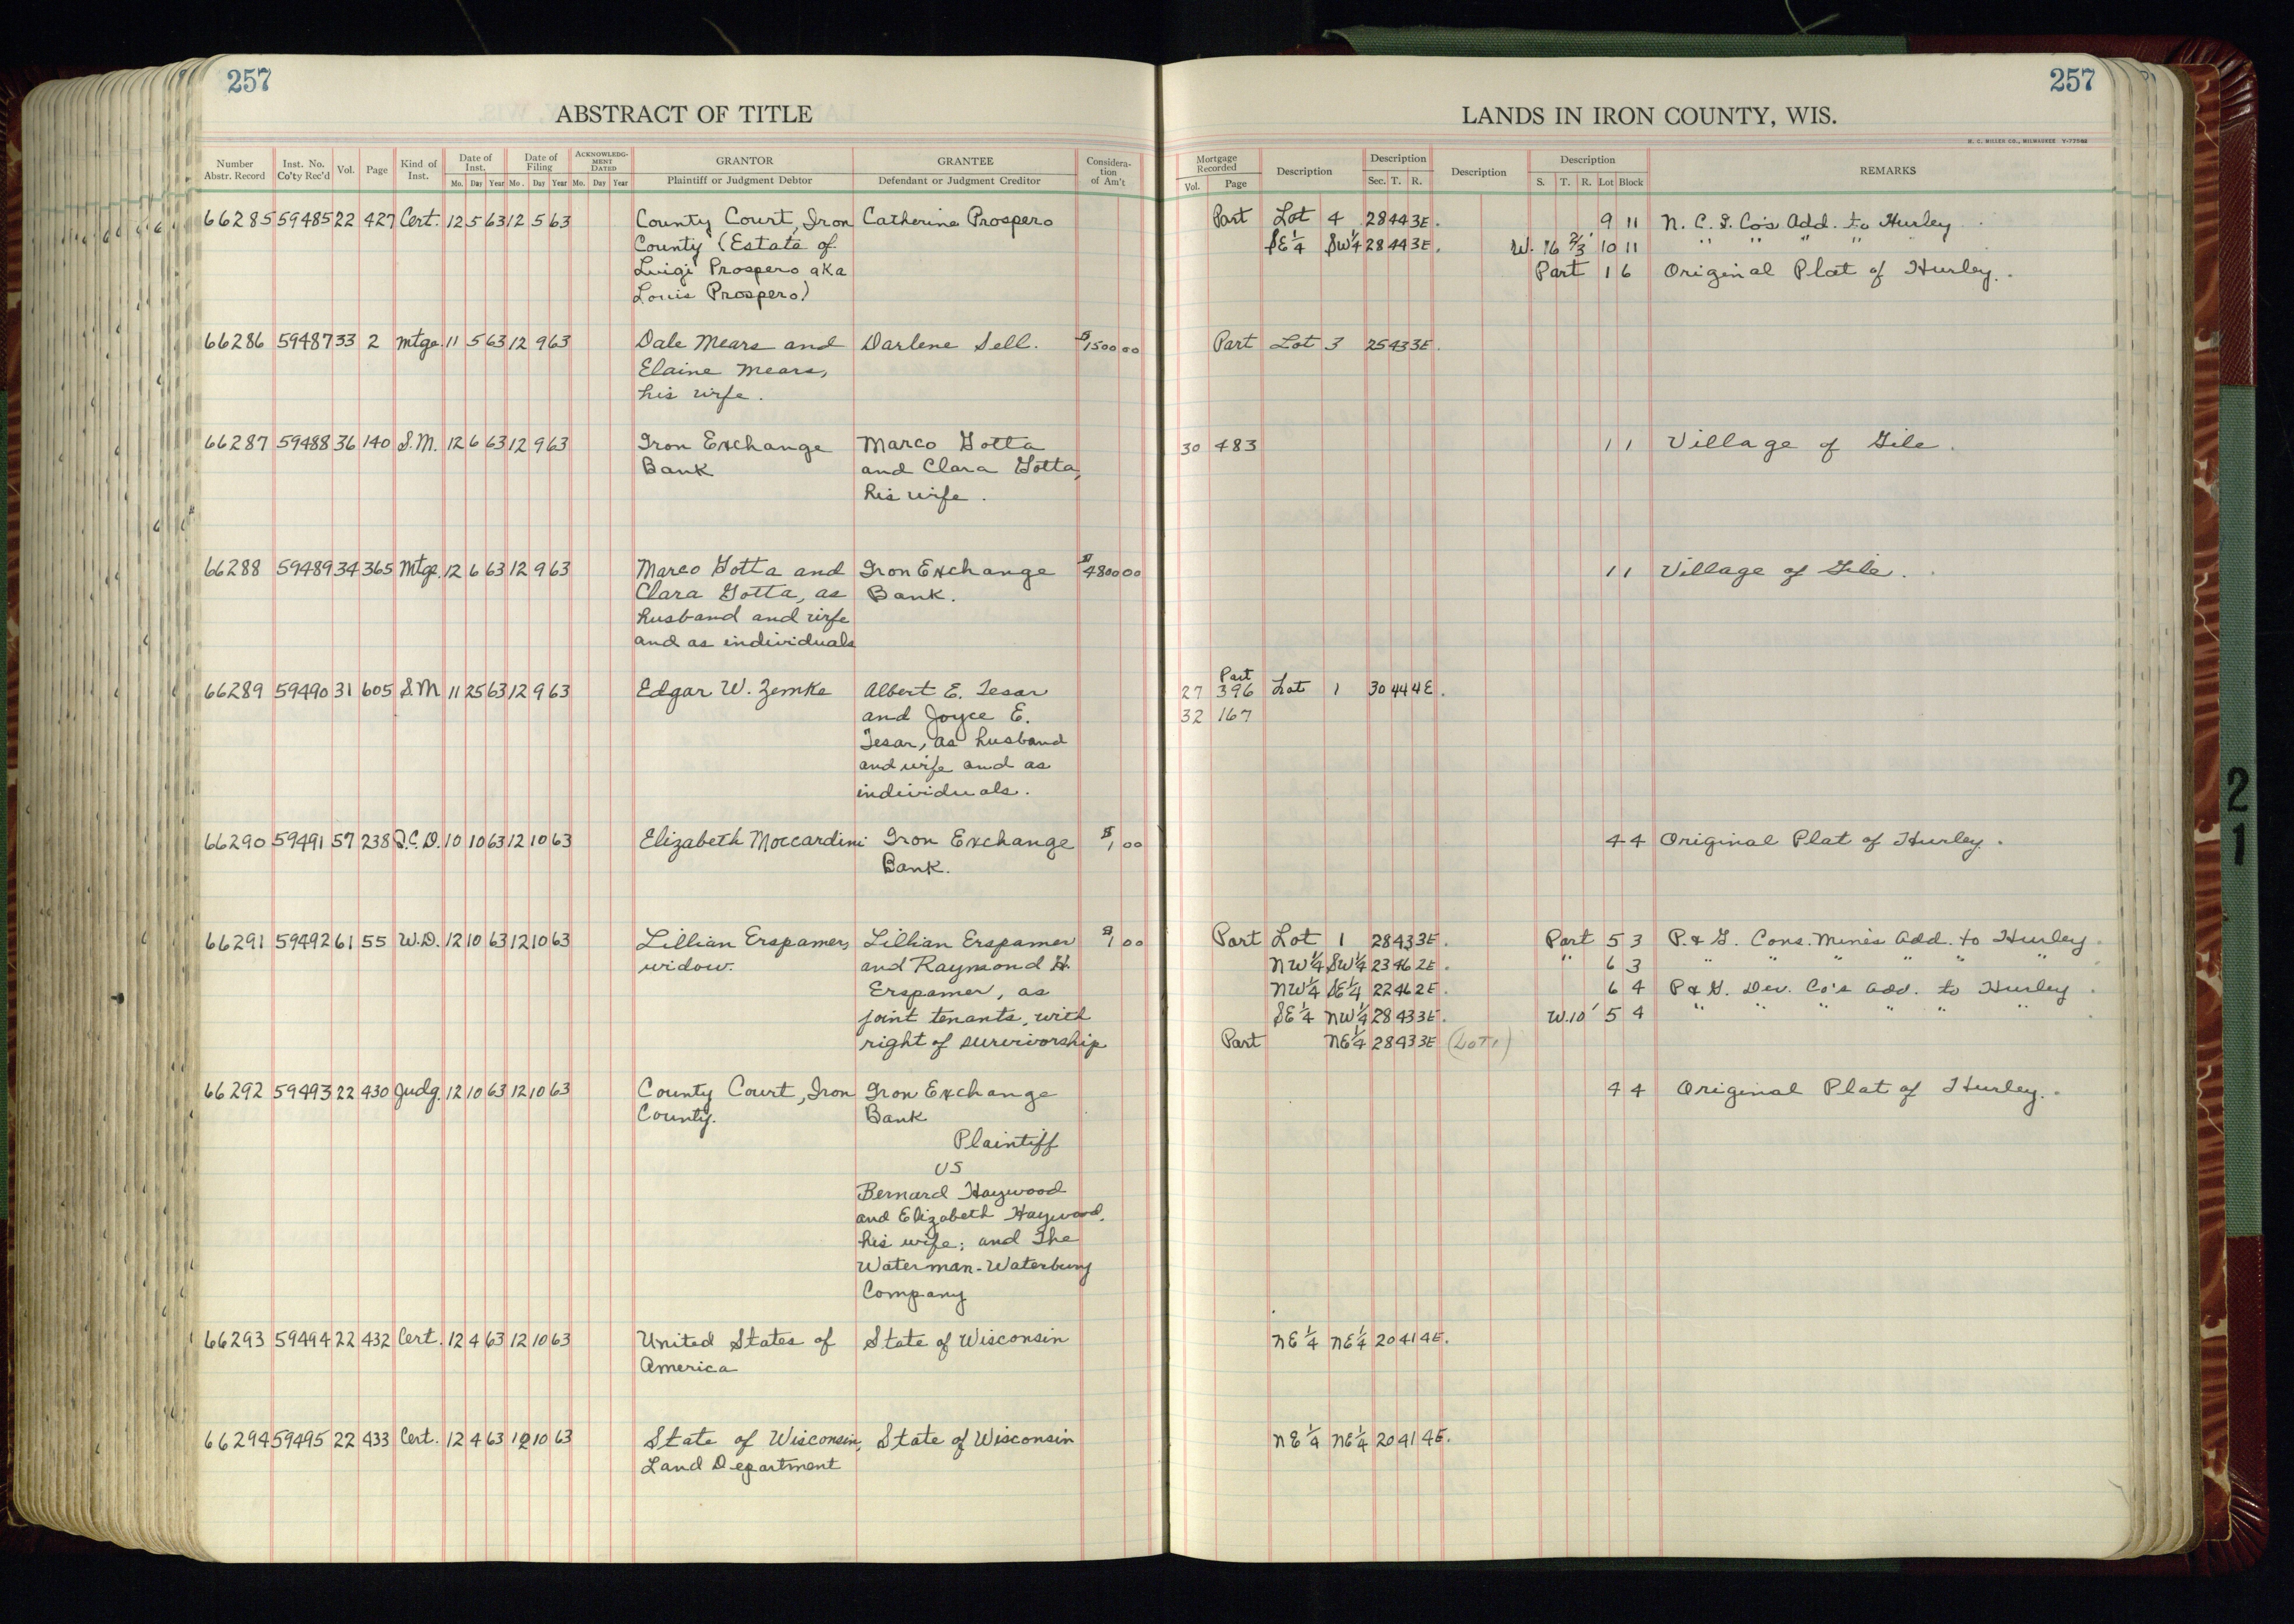 257
257
ABSTRACT OF TITLE
LANDS IN IRON COUNTY, WIS.
H. C. MILLER CO., MILWAUKEE
Number Abstr. Record | Inst. No. Co'ty Rec'd | Vol. | Page | Kind of Inst. | Date of Inst. Mo. Day Year | Date of Filing Mo. Day Year | ACKNOWLEDGMENT DATED Mo. Day Year | GRANTOR Plaintiff or Judgment Debtor | GRANTEE Defendant or Judgment Creditor | Consideration of Am't | Mortgage Recorded Vol. Page | Description | Description Sec. T. R. | Description | Description S. T. R. Lot Block | REMARKS
66285 59485 22 427 Cert. 12 5 63 12 5 63 County Court, Iron Catherine Prospero Part Lot 4 28 44 3E. 9 11 N. C. I. Co's Add. to Hurley
County (Estate of SE 1/4 SW 1/4 28 44 3E. W. 16 2/3' 10 11 " " " "
Luigi Prospero aka Part 1 6 Original Plat of Hurley.
Louis Prospero)
66286 59487 33 2 Mtge. 11 5 63 12 9 63 Dale Mears and Darlene Sell. $1500 00 Part Lot 3 25 43 3E.
Elaine Mears,
his wife.
66287 59488 36 140 S.M. 12 6 63 12 9 63 Iron Exchange Marco Gotta 30 483 1 1 Village of Gile.
Bank and Clara Gotta,
his wife.
66288 59489 34 365 Mtge. 12 6 63 12 9 63 Marco Gotta and Iron Exchange $4800 00 1 1 Village of Gile.
Clara Gotta, as Bank.
husband and wife
and as individuals
Part
66289 59490 31 605 S.M 11 25 63 12 9 63 Edgar W. Zemke Albert E. Tesar 27 396 Lot 1 30 44 4E.
and Joyce E. 32 167
Tesar, as husband
and wife and as
individuals.
66290 59491 57 238 Q.C.D. 10 10 63 12 10 63 Elizabeth Moccardini Iron Exchange $1 00 4 4 Original Plat of Hurley.
Bank.
66291 59492 61 55 W.D. 12 10 63 12 10 63 Lillian Erspamer, Lillian Erspamer $1 00 Part Lot 1 28 43 3E. Part 5 3 P. & G. Cons. Mines Add. to Hurley.
widow. and Raymond H. NW 1/4 SW 1/4 23 46 2E. " 6 3 " " " " " "
Erspamer, as NW 1/4 SE 1/4 22 46 2E. 6 4 P & G. Dev. Co's Add. to Hurley.
joint tenants, with SE 1/4 NW 1/4 28 43 3E. W. 10' 5 4 " " " " " "
right of survivorship Part NE 1/4 28 43 3E (Lot 1)
66292 59493 22 430 Judg. 12 10 63 12 10 63 County Court, Iron Iron Exchange 4 4 Original Plat of Hurley.
County. Bank
Plaintiff
vs
Bernard Haywood
and Elizabeth Haywood,
his wife; and The
Waterman-Waterbury
Company
66293 59494 22 432 Cert. 12 4 63 12 10 63 United States of State of Wisconsin NE 1/4 NE 1/4 20 41 4E.
America
66294 59495 22 433 Cert. 12 4 63 12 10 63 State of Wisconsin, State of Wisconsin NE 1/4 NE 1/4 20 41 4E.
Land Department
2
1